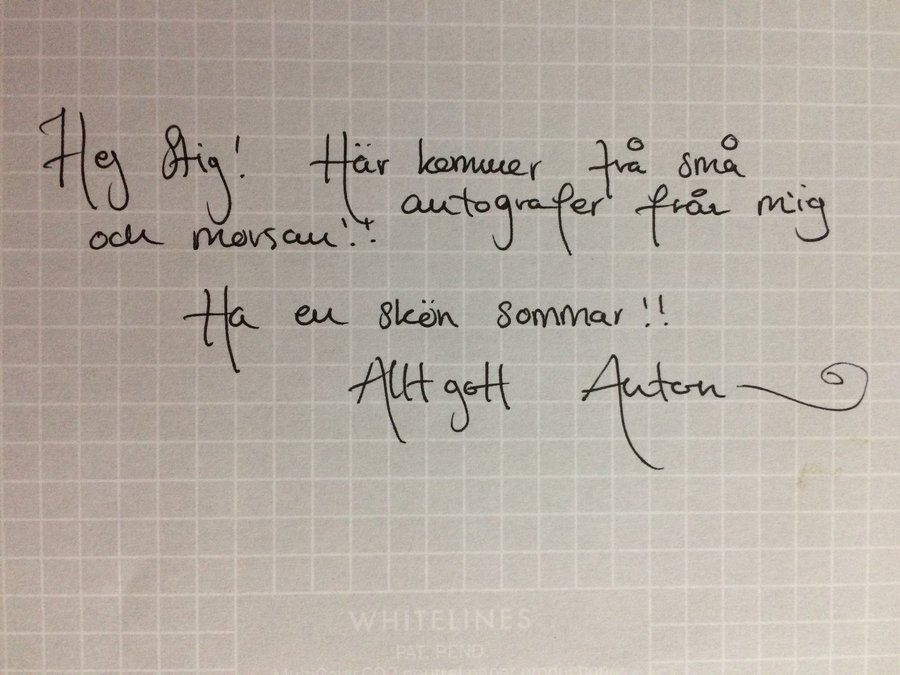 Hej Stig! Här kommer två små
autografer från mig
och morsan!!
Ha en skön sommar!!
Allt gott Anton
WHITELINES
PAT. PEND.